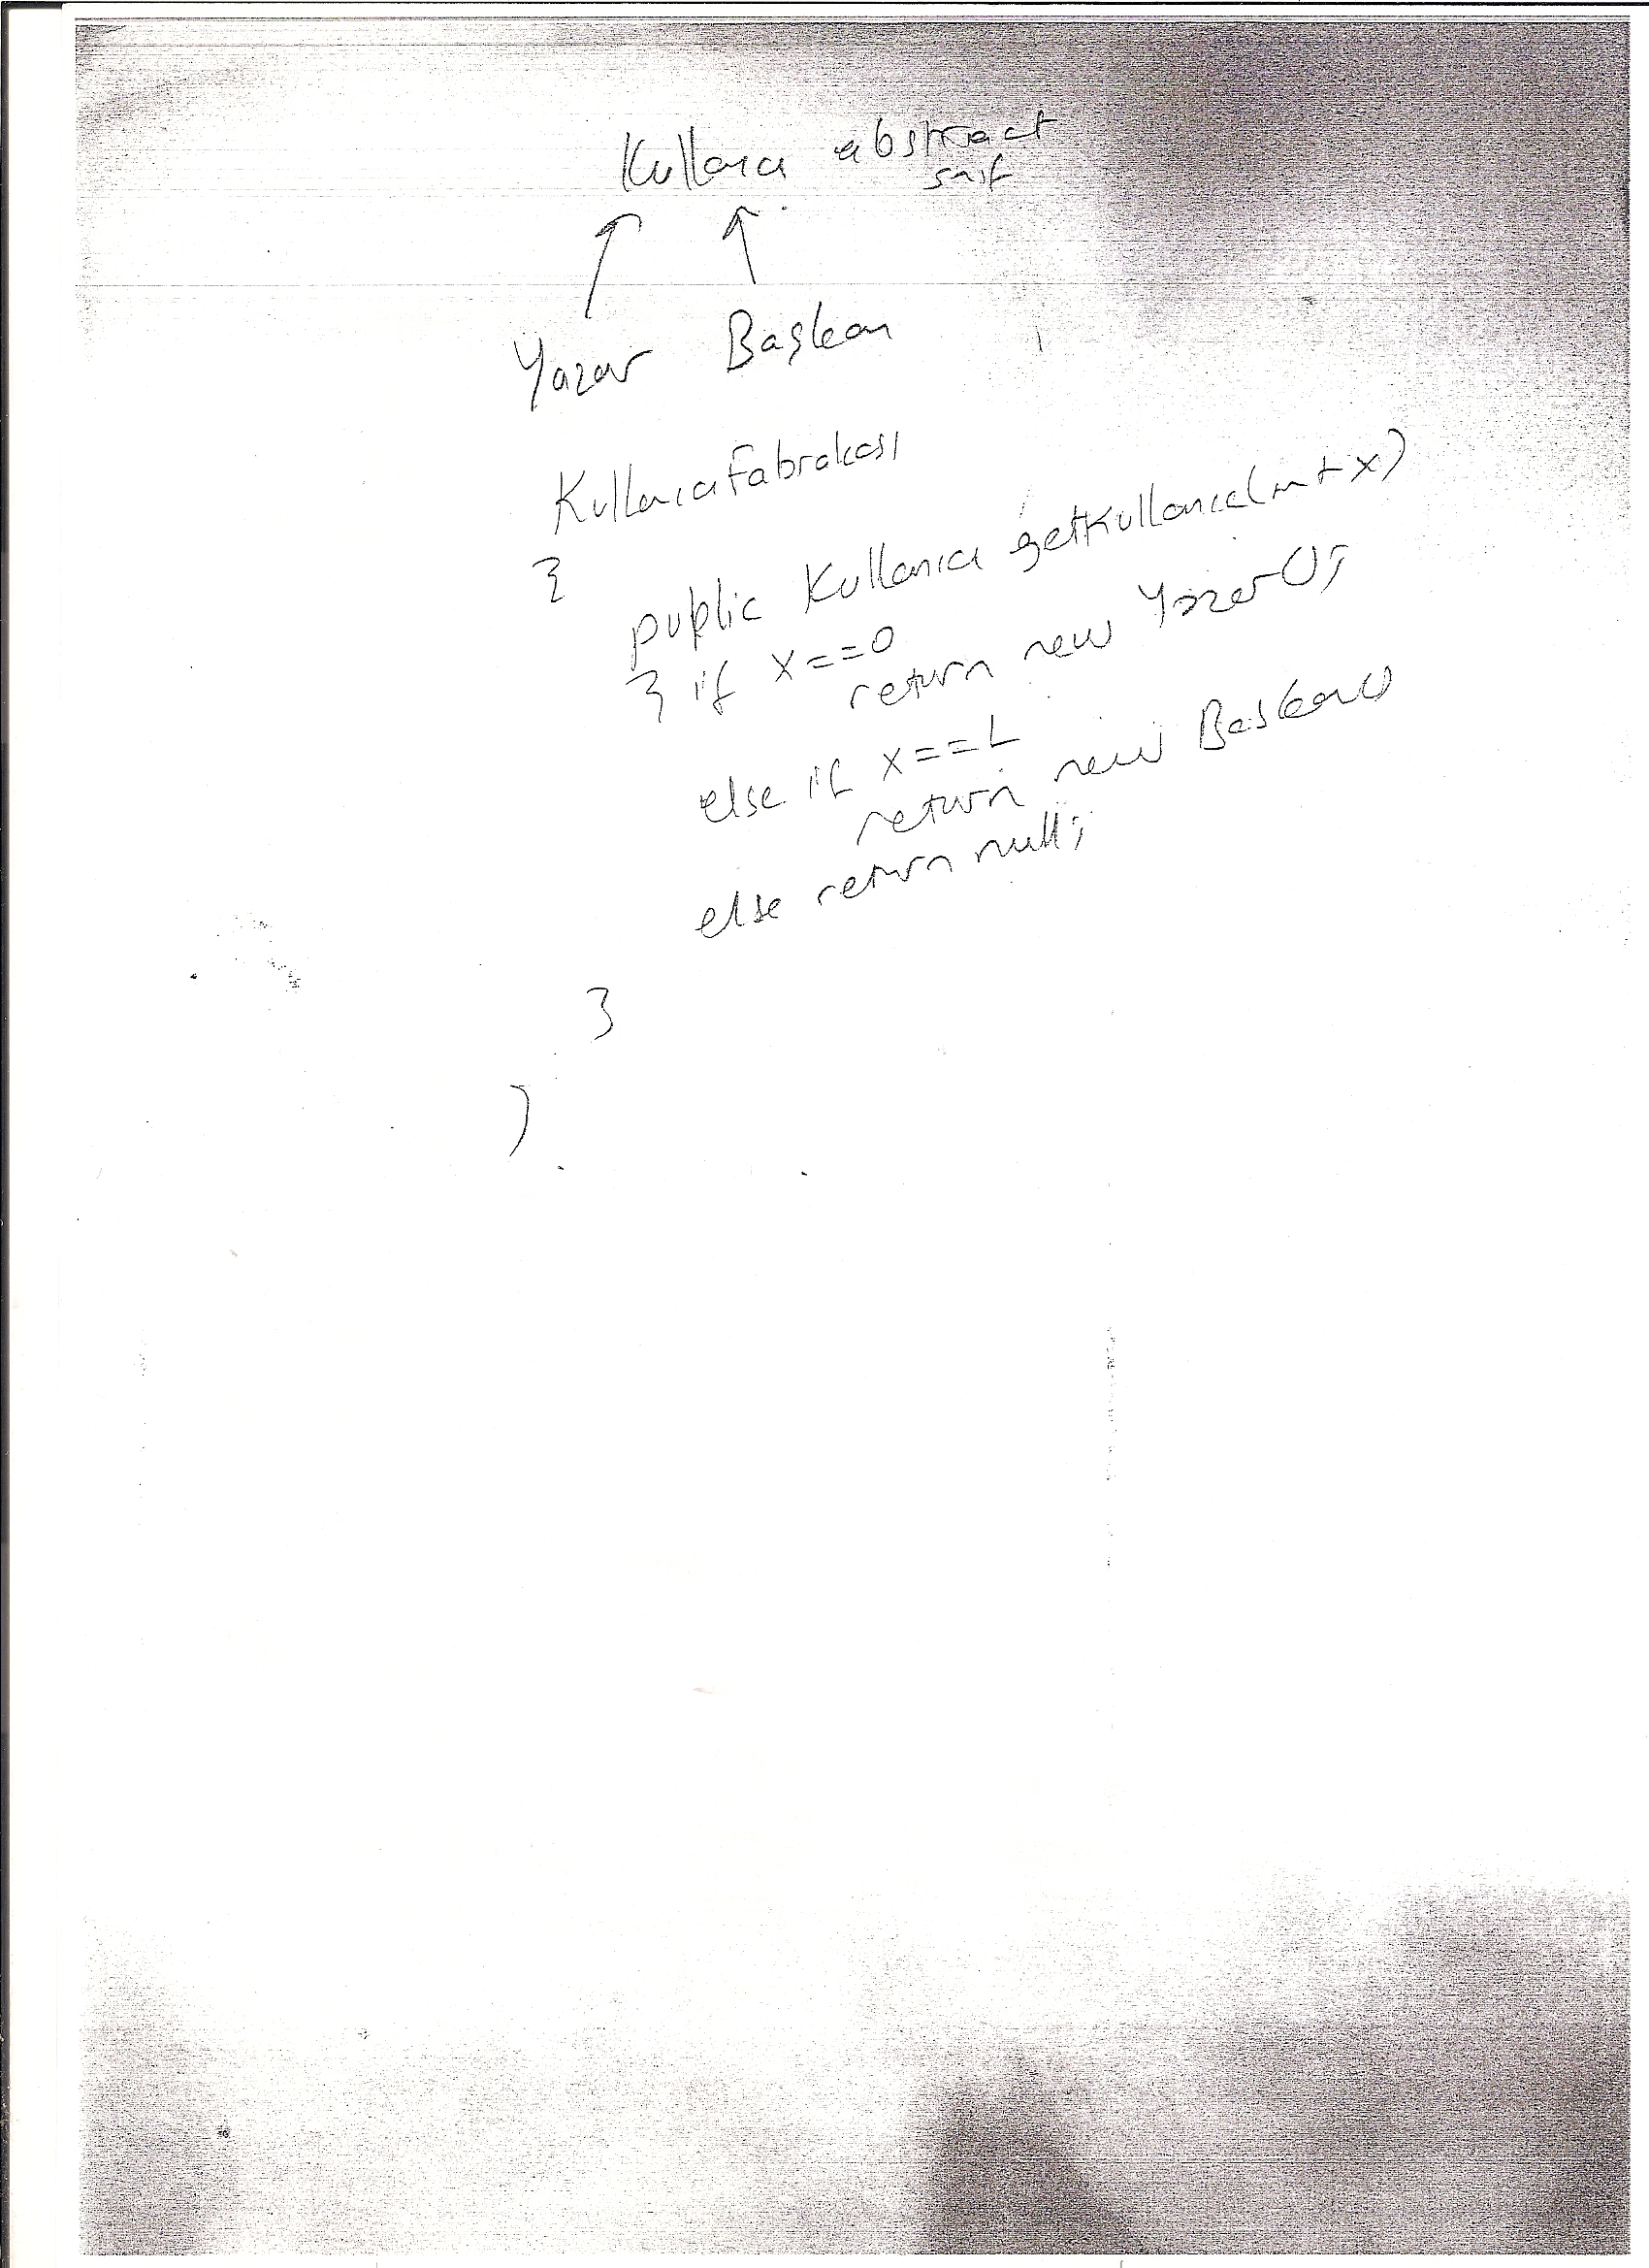 Kullanıcı abstract
sınıf
Yazar Başkan
KullanıcıFabrakası
{
public Kullanıcı getKullanıcı(int x)
{ if x==0
return new Yazar();
else if x==1
return new Baskan()
else return null;
}
}